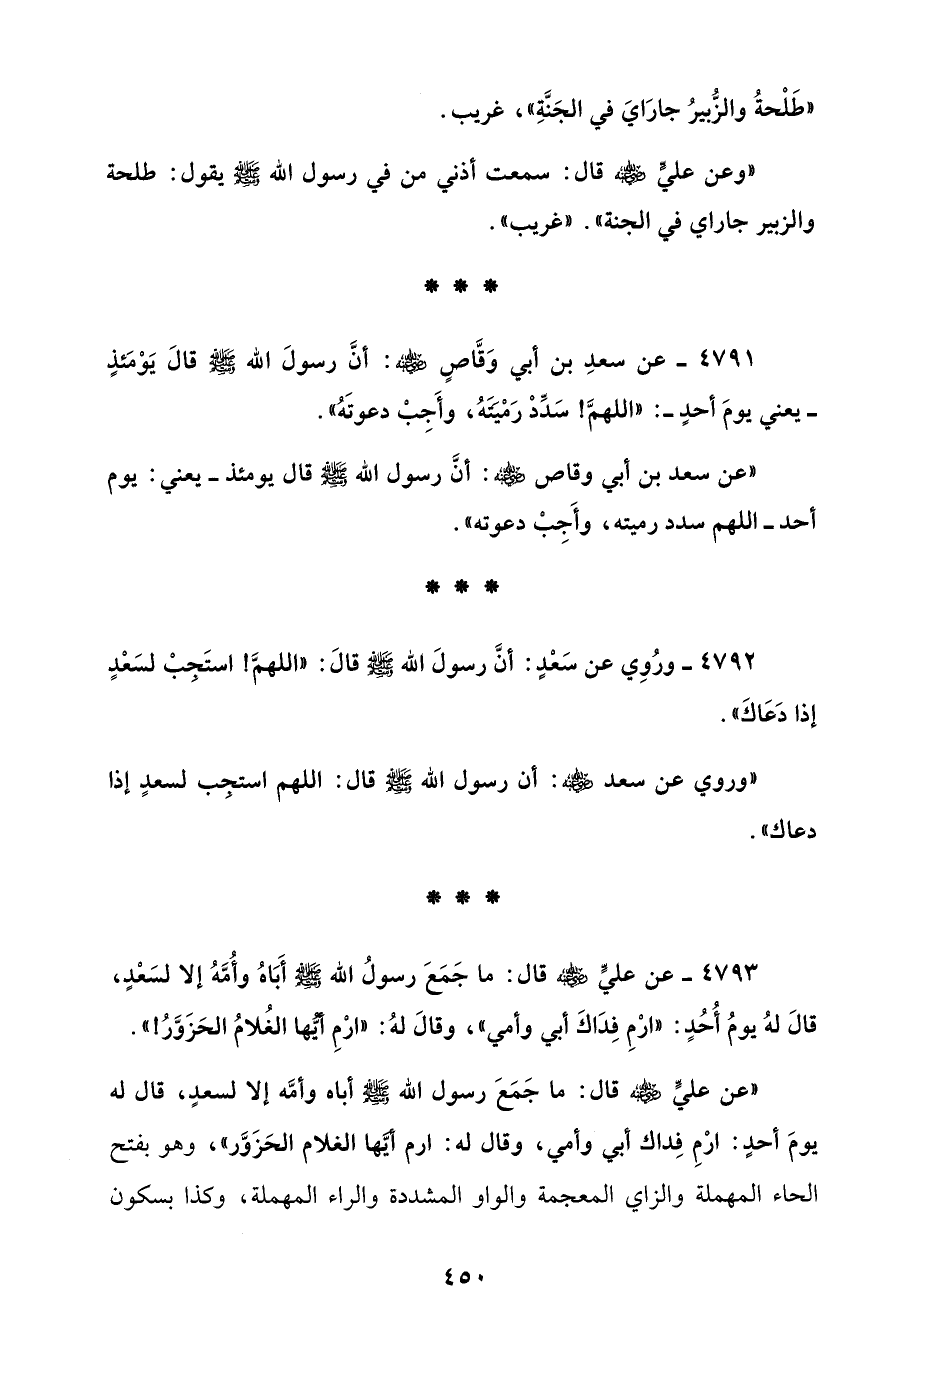 «طَلْحةُ والزُّبيرُ جارَايَ في الجَنَّةِ»، غريب.
«وعن عليٍّ ﷺ قال: سمعت أذني من في رسول الله ﷺ يقول: طلحة
والزبير جاراي في الجنة». «غريب».
* * *
٤٧٩١ ـ عن سعدِ بن أبي وَقَّاصٍ رضي الله عنه: أنَّ رسولَ الله ﷺ قالَ يَوْمَئذٍ
ـ يعني يومَ أحدٍ ـ: «اللهمَّ! سَدِّدْ رَمْيَتَهُ، وأَجِبْ دعوتَهُ».
«عن سعد بن أبي وقاص رضي الله عنه: أنَّ رسول الله ﷺ قال يومئذ ـ يعني: يوم
أحد ـ اللهم سدد رميته، وأَجِبْ دعوته».
* * *
٤٧٩٢ ـ ورُوِي عن سَعْدٍ: أنَّ رسولَ الله ﷺ قالَ: «اللهمَّ! استَجِبْ لسَعْدٍ
إذا دَعَاكَ».
«وروي عن سعد رضي الله عنه: أن رسول الله ﷺ قال: اللهم استجِب لسعدٍ إذا
دعاك».
* * *
٤٧٩٣ ـ عن عليٍّ رضي الله عنه قال: ما جَمَعَ رسولُ الله ﷺ أَبَاهُ وأُمَّهُ إلا لسَعْدٍ،
قالَ لهُ يومُ أُحُدٍ: «ارْمِ فِدَاكَ أبي وأمي»، وقالَ لهُ: «ارْمِ أيُّها الغُلامُ الحَزَوَّرُ!».
«عن عليٍّ رضي الله عنه قال: ما جَمَعَ رسول الله ﷺ أباه وأمَّه إلا لسعدٍ، قال له
يومَ أحدٍ: ارْمِ فِداك أبي وأمي، وقال له: ارم أيَّها الغلام الحَزَوَّر»، وهو بفتح
الحاء المهملة والزاي المعجمة والواو المشددة والراء المهملة، وكذا بسكون
٤٥٠